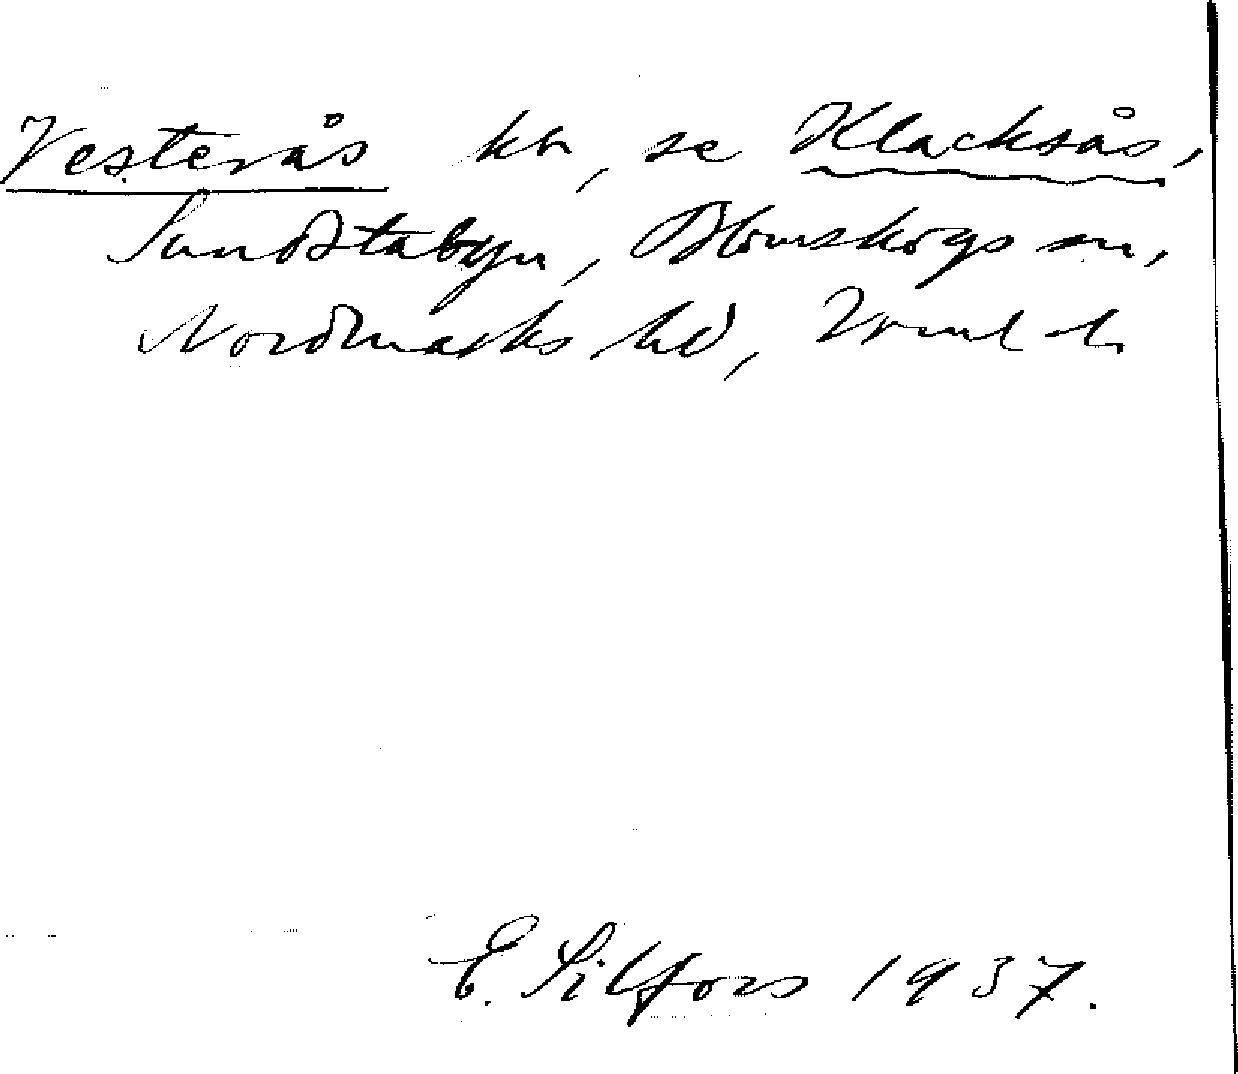 Vesterås hn, se Klacksås,
Sundstabyn, Blomskogs sn,
Nordmarks hd, Vrml l.
E. Silfors 1937.